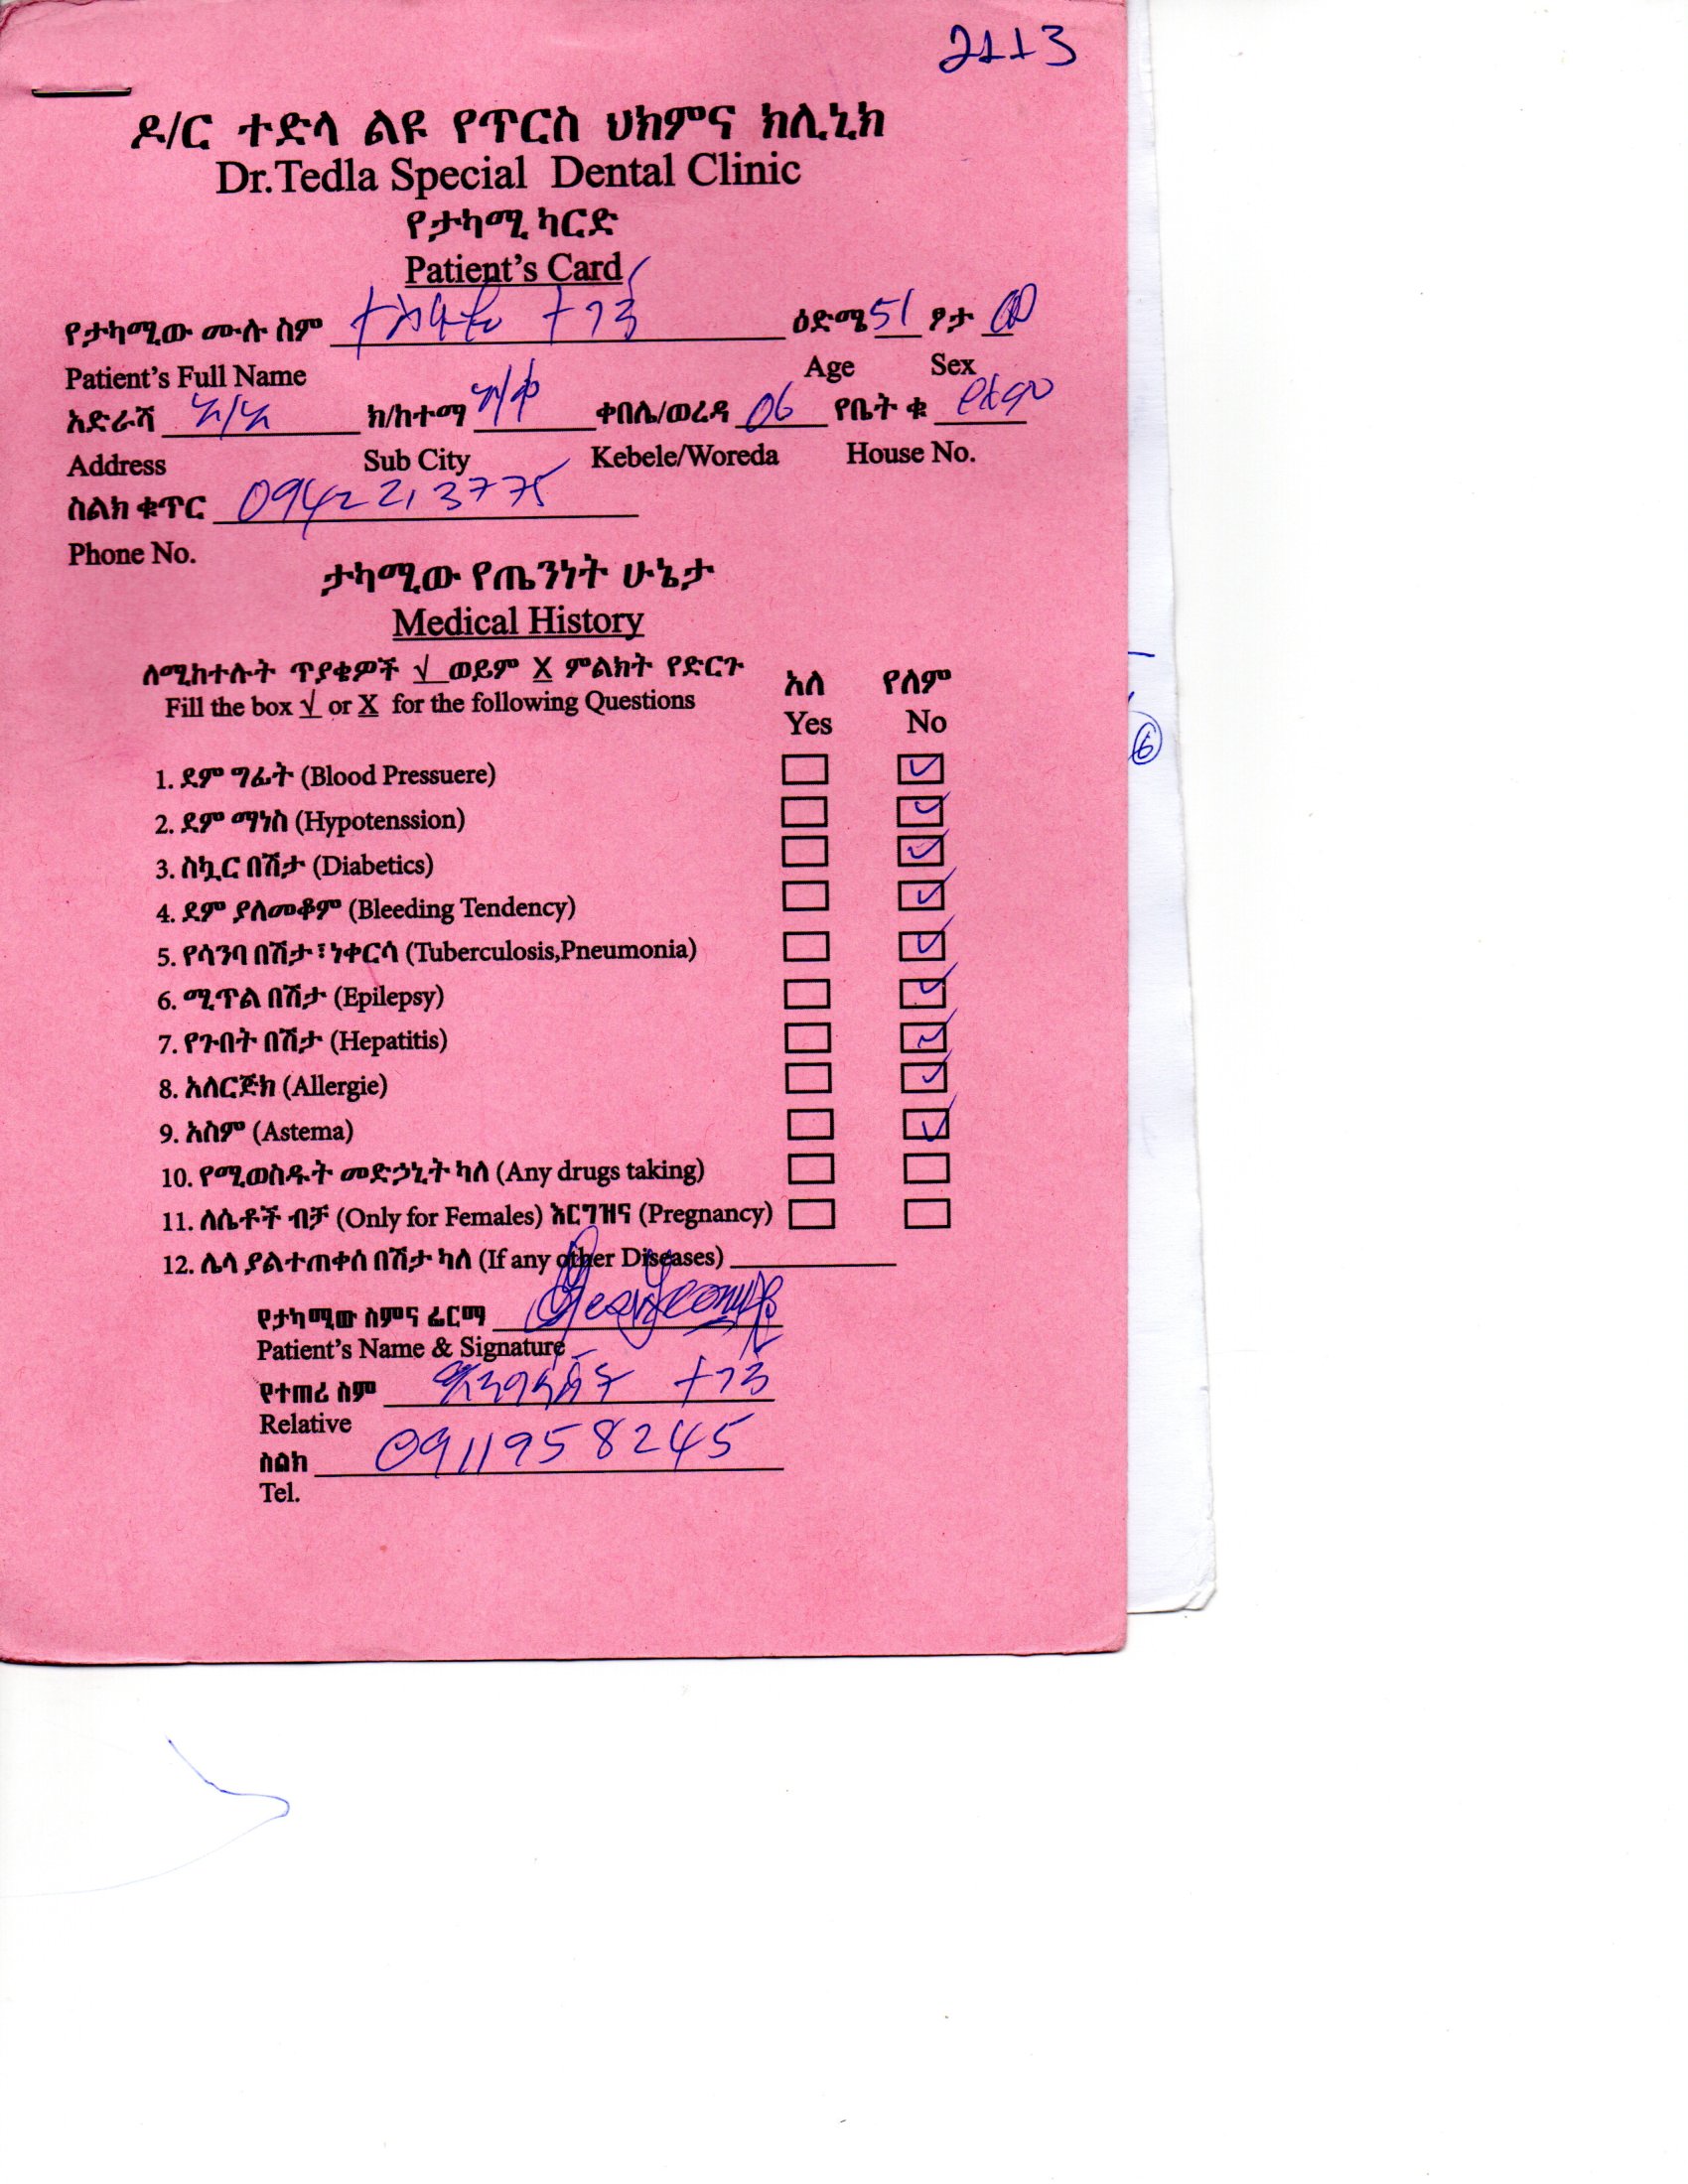 2113
ዶ/ር ተድላ ልዩ የጥርስ ህክምና ክሊኒክ
Dr.Tedla Special Dental Clinic
የታካሚ ካርድ
Patient's Card
የታካሚው ሙሉ ስም ዕድሜ 51 ፆታ
Patient's Full Name Age Sex
አድራሻ ክ/ከተማ ቀበሌ/ወረዳ 06 የቤት ቁ
Address Sub City Kebele/Woreda House No.
ስልክ ቁጥር 0942213775
Phone No.
ታካሚው የጤንነት ሁኔታ
Medical History
ለሚከተሉት ጥያቄዎች √ ወይም X ምልክት የድርጉ አለ የለም
Fill the box √ or X for the following Questions Yes No
1. ደም ግፊት (Blood Pressuere) ✓
2. ደም ማነስ (Hypotenssion) ✓
3. ስኳር በሽታ (Diabetics) ✓
4. ደም ያለመቆም (Bleeding Tendency) ✓
5. የሳንባ በሽታ፣ነቀርሳ (Tuberculosis,Pneumonia) ✓
6. ሚጥል በሽታ (Epilepsy) ✓
7. የጉበት በሽታ (Hepatitis) ✓
8. አለርጅክ (Allergie) ✓
9. አስም (Astema) ✓
10. የሚወስዱት መድኃኒት ካለ (Any drugs taking)
11. ለሴቶች ብቻ (Only for Females) እርግዝና (Pregnancy)
12. ሌላ ያልተጠቀሰ በሽታ ካለ (If any other Diseases)
የታካሚው ስምና ፊርማ
Patient's Name & Signature
የተጠሪ ስም
Relative
ስልክ 0911958245
Tel.
6